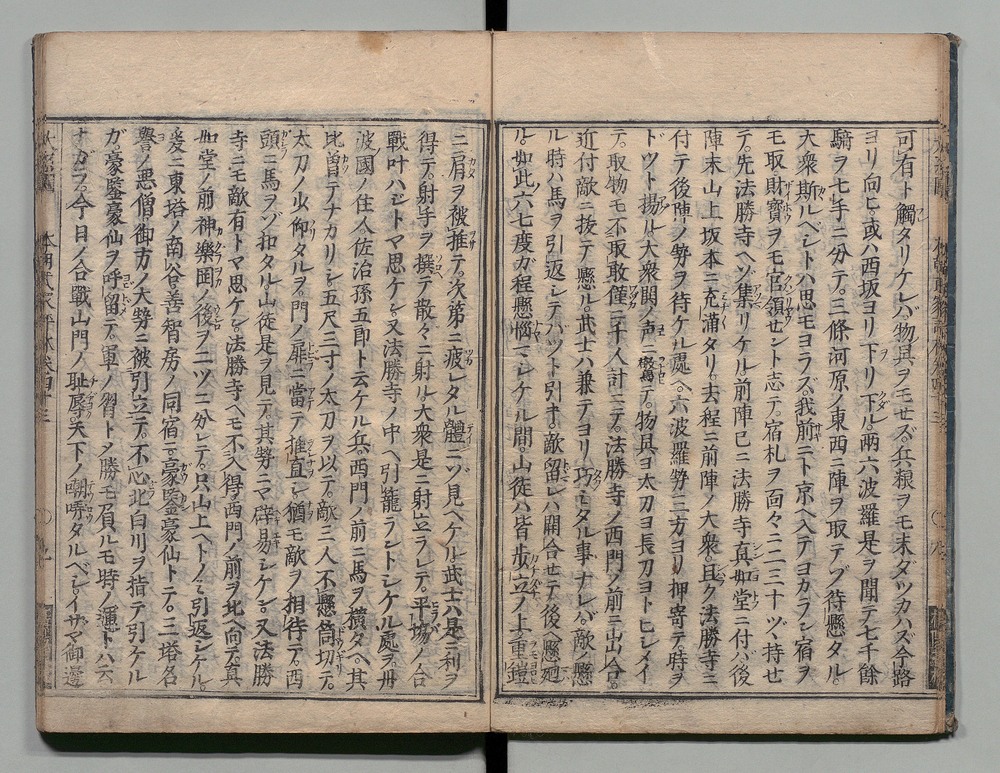 可有ト觸タリケレバ物具ヲモせズ兵粮ヲモ未ダツカハズ今路
ヨリ向ヒ或ハ西坂ヨリ下リ下ル兩六波羅是ヲ聞テ七千餘
騎ヲ七手ニ分テ三條河原ノ東西ニ陣ヲ取テゾ待懸タル
大衆斯ルベシトハ思モヨラズ我前ニト京ヘ入テヨカラン宿ヲ
モ取財寳ヲモ官領せント志テ宿札ヲ面々ニ二三十ツヽ持せ
テ先法勝寺ヘゾ集リケル前陣已ニ法勝寺真如堂ニ付バ後
陣未山上坂本ニ充滿タリ去程ニ前陣ノ大衆且ク法勝寺ニ
付テ後陣ノ勢ヲ待ケル處ヘ六波羅勢三方ヨリ押寄テ時ヲ
ドツト揚ル大衆鬨ノ声ニ驚テ物具ヨ太刀ヨ長刀ヨトヒシメイ
テ取物モ不取敢僅ニ千人計ニテ法勝寺ノ西門ノ前ニ出合
近付敵ニ抜テ懸ル武士ハ兼テヨリ巧ミタル事ナレバ敵ノ懸
ル時ハ馬ヲ引返シテバツト引キ敵留レバ開合せテ後ヘ懸廻
ル如此六七度ガ程懸惱マシケル間山徒ハ皆歩立ノ上重鎧
ニ肩ヲ被推テ次第ニ疲レタル體ニゾ見ヘケル武士ハ是ニ利ヲ
得テ射手ヲ撰テ散々ニ射ル大衆是ニ射立ラレテ平場ノ合
戰叶ハジトヤ思ケン又法勝寺ノ中ヘ引籠ラントシケル處ヲ丹
波國ノ住人佐治孫五郎ト云ケル兵西門ノ前ニ馬ヲ横タヘ其
比曽テナカリシ五尺三寸ノ太刀ヲ以テ敵三人不懸筒切テ
太刀ノ少仰タルヲ門ノ扉ニ當テ推直シ猶モ敵ヲ相待テ西
頭ニ馬ヲゾ扣タル山徒是ヲ見テ其勢ニヤ辟易シケン又法勝
寺ニモ敵有トヤ思ケン法勝寺ヘモ不入得西門ノ前ヲ北ヘ向テ真
如堂ノ前神樂岡ノ後ヲニツニ分レテ只山上ヘトノミ引返シケル
爰ニ東塔ノ南谷善智房ノ同宿ニ豪鑒豪仙トテ三塔名
譽ノ悪僧御方ノ大勢ニ被引立テ不心北白川ヲ指テ引ケル
ガ豪鑒豪仙ヲ呼留テ軍ノ習トメ勝モ負ルモ時ノ運ト ハ云
ナガラ今日ノ合戰山門ノ耻辱天下ノ嘲哢タルベシイザヤ御邊